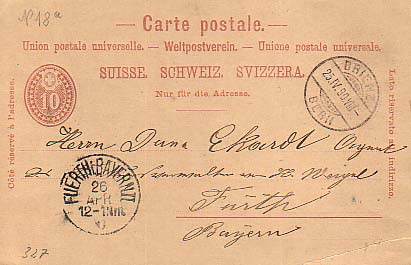 No 18a
— Carte postale. —
Union postale universelle. — Weltpostverein. — Unione postale universale.
SUISSE. SCHWEIZ. SVIZZERA.
Nur für die Adresse.
10
Côté réservé à l'adresse.
Lato riservato all' indirizzo.
BRIENZ
25.IV.90.
BERN
Herrn Dana Ekardt
Fürth
Bayern
FUERTH(BAYERN)II
26
APR
12-1Nm
327